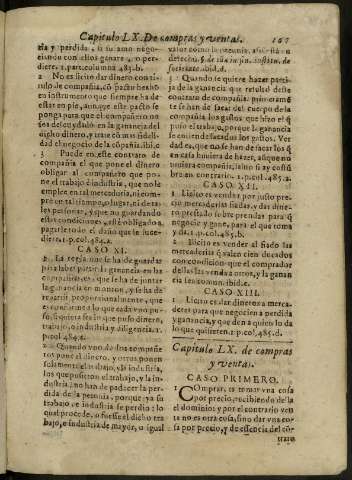 Capitulo LX. De compras y ventas.
cia y perdida, si su amo
con ellos ganare, o per-
diere. 1. part. columna 483. b.
2 No es licito dar dinero con ti-
tulo de compañia, cõ pacto hecho
en instrumento que siempre ha de
estar en pie, aunque este pacto se
ponga para que el compañero no
sea del cuydado en la ganancia del
dicho dinero, y trate cõ mas fideli-
dad el negocio de la cõpañia. ibi. c
3 Puede en este contrato de
compañia el que pone el dinero
obligar al compañero que po-
ne el trabajo è industria, que no le
emplee en tal mercaderia, ni com-
pre en tal tiempo, o lugar, ni de ta-
les personas, y que no guardando
estas condiciones, estè obligado a
pagarle todo el daño que se luc-
diere. 1. p. col. 484. a.
CASO XI.
1 La regla que se ha de guardar
para saber partir la ganancia en las
compañias es, que se ha de juntar
la ganancia en monton, y se ha de
repartir proporcionalmente, que
es conforme a lo que cada vno pu-
so, si quiera sea lo que puso dinero,
trabajo, o industria y diligencia. 1.
p. col. 484.
2 Quando vno de dos compañe-
ros pone el dinero, y otros ponen
solamente el trabajo, y la industria,
los que pusieron el trabajo, y la in-
dustria, no han de padecer la per-
dida de la pecunia, porque ya su
trabajo, e industria se perdio; lo
qual procede, o fuesse el dicho tra
bajo, o industria de mayor, o igual
valor como la pecunia, assi està
ibid. d.
3 Quando se quiere hazer parti-
ja de la ganancia de este contrato
de compañia, primeramẽ
te se han de sacar del cuerpo de la
compañia los gastos que hizo el q̃
puso el trabajo, porque la ganancia
se entiende sacados los gastos. Ver
dad es, que no se han de sacar los q̃
en casa huuiera de hazer, aũque no
tomara compañia, sino ay costũ-
bre en contrario. 1. p. col. 485. a.
CASO XII.
1 Licito es vender por justo precio
mercaderias fiadas, y dar dine-
ro prestado sobre prendas para q̃
negocie y gane, para el que toma
y da. 1. p. col. 485. b.
2 Ilicito es vender al fiado las
mercaderias q̃ valen cien ducados
con condicion que el comprador
dellas las venda a otro, y la ganan
cia sea comun. ibid. e.
CASO XIII.
1 Licito es dar dineros a merca-
deres para que negocien a perdida
y ganancia, y que den a quien lo da
lo que quisieren. 1. p. col. 485. d.
Capitulo LX. de compras
y ventas.
CASO PRIMERO.
1 Comprar, es tomar vna cosa
por precio, recibiendo de la
el dominio: y por el contrario ven
ta no es otra cosa, sino dar vna co
sa por precio, y de essencia del cõ-